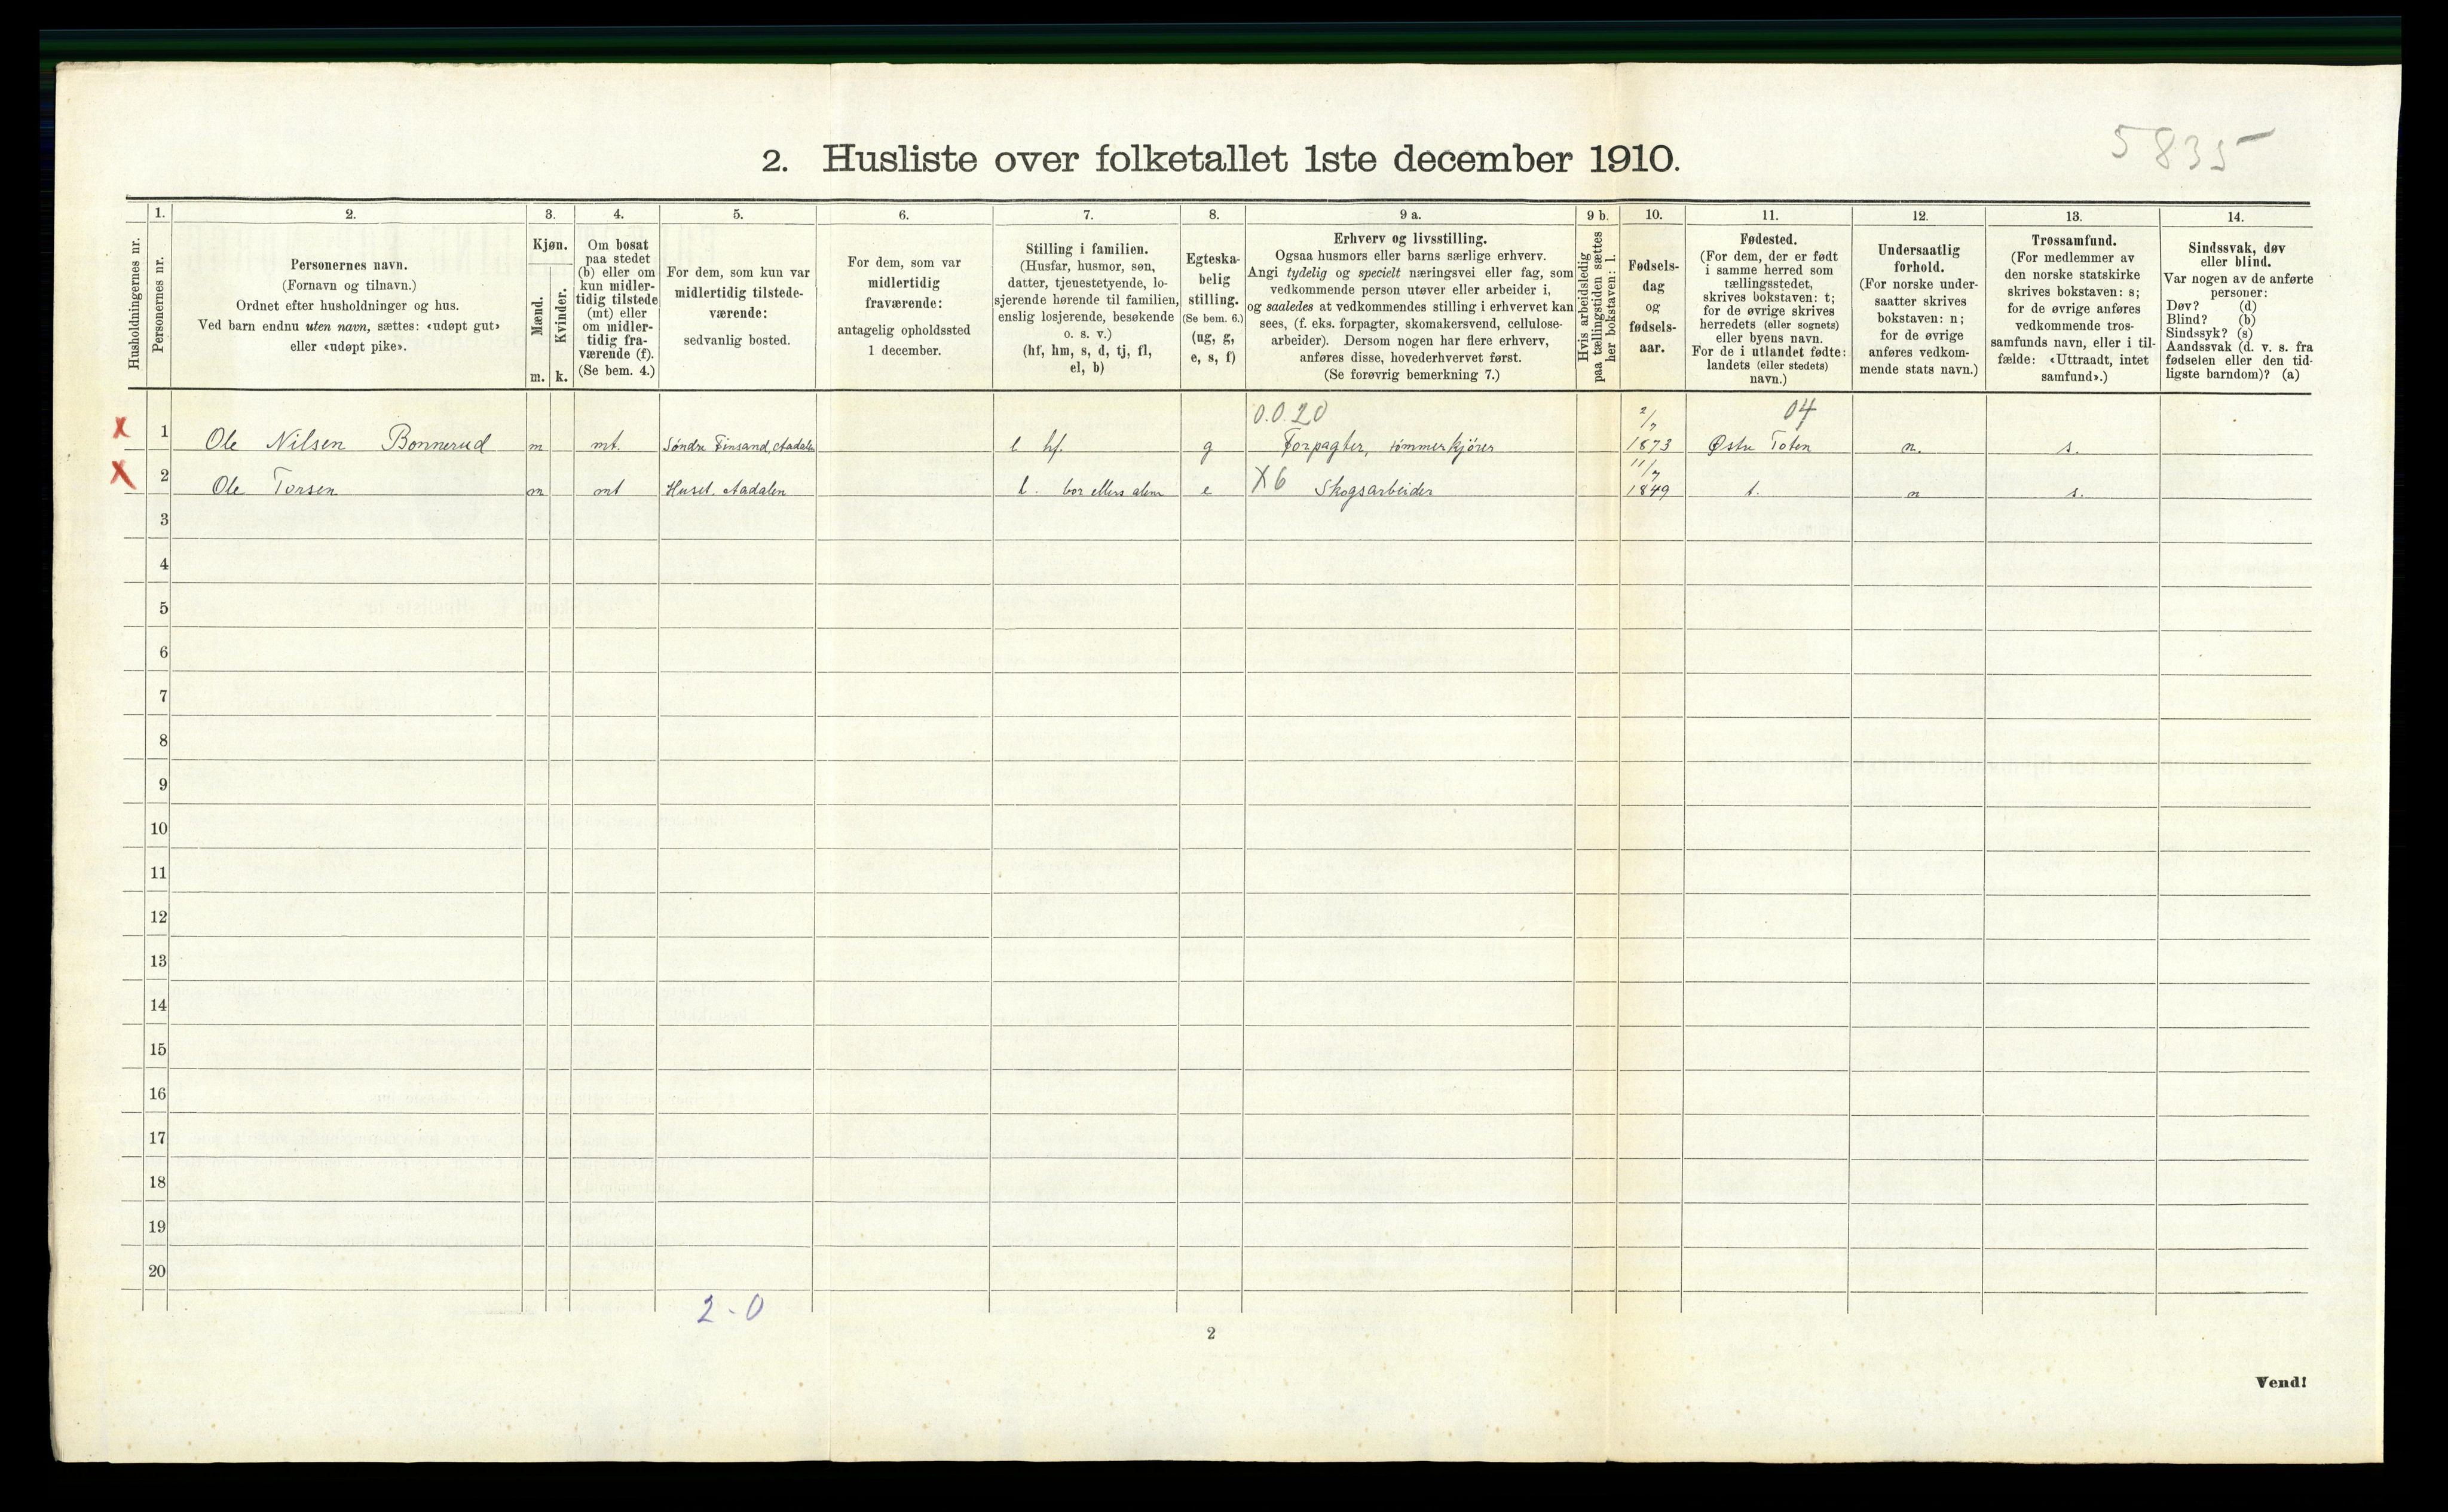 5835
2. Husliste over folketallet 1ste december 1910.
Husholdningernes nr.
1.
Personernes nr.
2.
Personernes navn.
(Fornavn og tilnavn.)
Ordnet efter husholdninger og hus.
Ved barn endnu uten navn, sættes: «udøpt gut»
eller «udøpt pike».
3.
Kjøn.
Mænd.
Kvinder.
m. k.
4.
Om bosat
paa stedet
(b) eller om
kun midler-
tidig tilstede
(mt) eller
om midler-
tidig fra-
værende (f).
(Se bem. 4.)
5.
For dem, som kun var
midlertidig tilstede-
værende:
sedvanlig bosted.
6.
For dem, som var
midlertidig
fraværende:
antagelig opholdssted
1 december.
7.
Stilling i familien.
(Husfar, husmor, søn,
datter, tjenestetyende, lo-
sjerende hørende til familien,
enslig losjerende, besøkende
o. s. v.)
(hf, hm, s, d, tj, fl,
el, b)
8.
Egteska-
belig
stilling.
(Se bem. 6.)
(ug, g,
e, s, f)
9 a.
Erhverv og livsstilling.
Ogsaa husmors eller barns særlige erhverv.
Angi tydelig og specielt næringsvei eller fag, som
vedkommende person utøver eller arbeider i,
og saaledes at vedkommendes stilling i erhvervet kan
sees, (f. eks. forpagter, skomakersvend, cellulose-
arbeider). Dersom nogen har flere erhverv,
anføres disse, hovederhvervet først.
(Se forøvrig bemerkning 7.)
9 b.
Hvis arbeidsledig
paa tællingstiden sættes
her bokstaven: l.
10.
Fødsels-
dag
og
fødsels-
aar.
11.
Fødested.
(For dem, der er født
i samme herred som
tællingsstedet,
skrives bokstaven: t;
for de øvrige skrives
herredets (eller sognets)
eller byens navn.
For de i utlandet fødte:
landets (eller stedets)
navn.)
12.
Undersaatlig
forhold.
(For norske under-
saatter skrives
bokstaven: n;
for de øvrige
anføres vedkom-
mende stats navn.)
13.
Trossamfund.
(For medlemmer av
den norske statskirke
skrives bokstaven: s;
for de øvrige anføres
vedkommende tros-
samfunds navn, eller i til-
fælde: «Uttraadt, intet
samfund».)
14.
Sindssvak, døv
eller blind.
Var nogen av de anførte
personer:
Døv? (d)
Blind? (b)
Sindssyk? (s)
Aandssvak (d. v. s. fra
fødselen eller den tid-
ligste barndom)? (a)
0.0.20 2/7 04
x 1 Ole Nilsen Bonnerud m mt. Søndre Finsand, Aadalen l hf. g Forpagter, tømmerkjører 1873 Østre Toten n. s.
11/7
X 2 Ole Torsen m mt Huset. Aadalen l. bor ellers alene e X6 Skogsarbeider 1849 t. n s.
3
4
5
6
7
8
9
10
11
12
13
14
15
16
17
18
19
20
2-0
2
Vend!